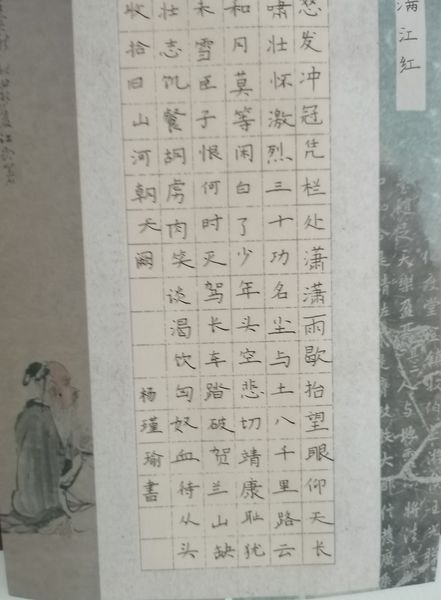 满江红
怒发冲冠凭栏处潇潇雨歇抬望眼仰天长
啸壮怀激烈三十功名尘与土八千里路云
和月莫等闲白了少年头空悲切靖康耻犹
未雪臣子恨何时灭驾长车踏破贺兰山缺
壮志饥餐胡虏肉笑谈渴饮匈奴血待从头
收拾旧山河朝天阙
杨瑾瑜書